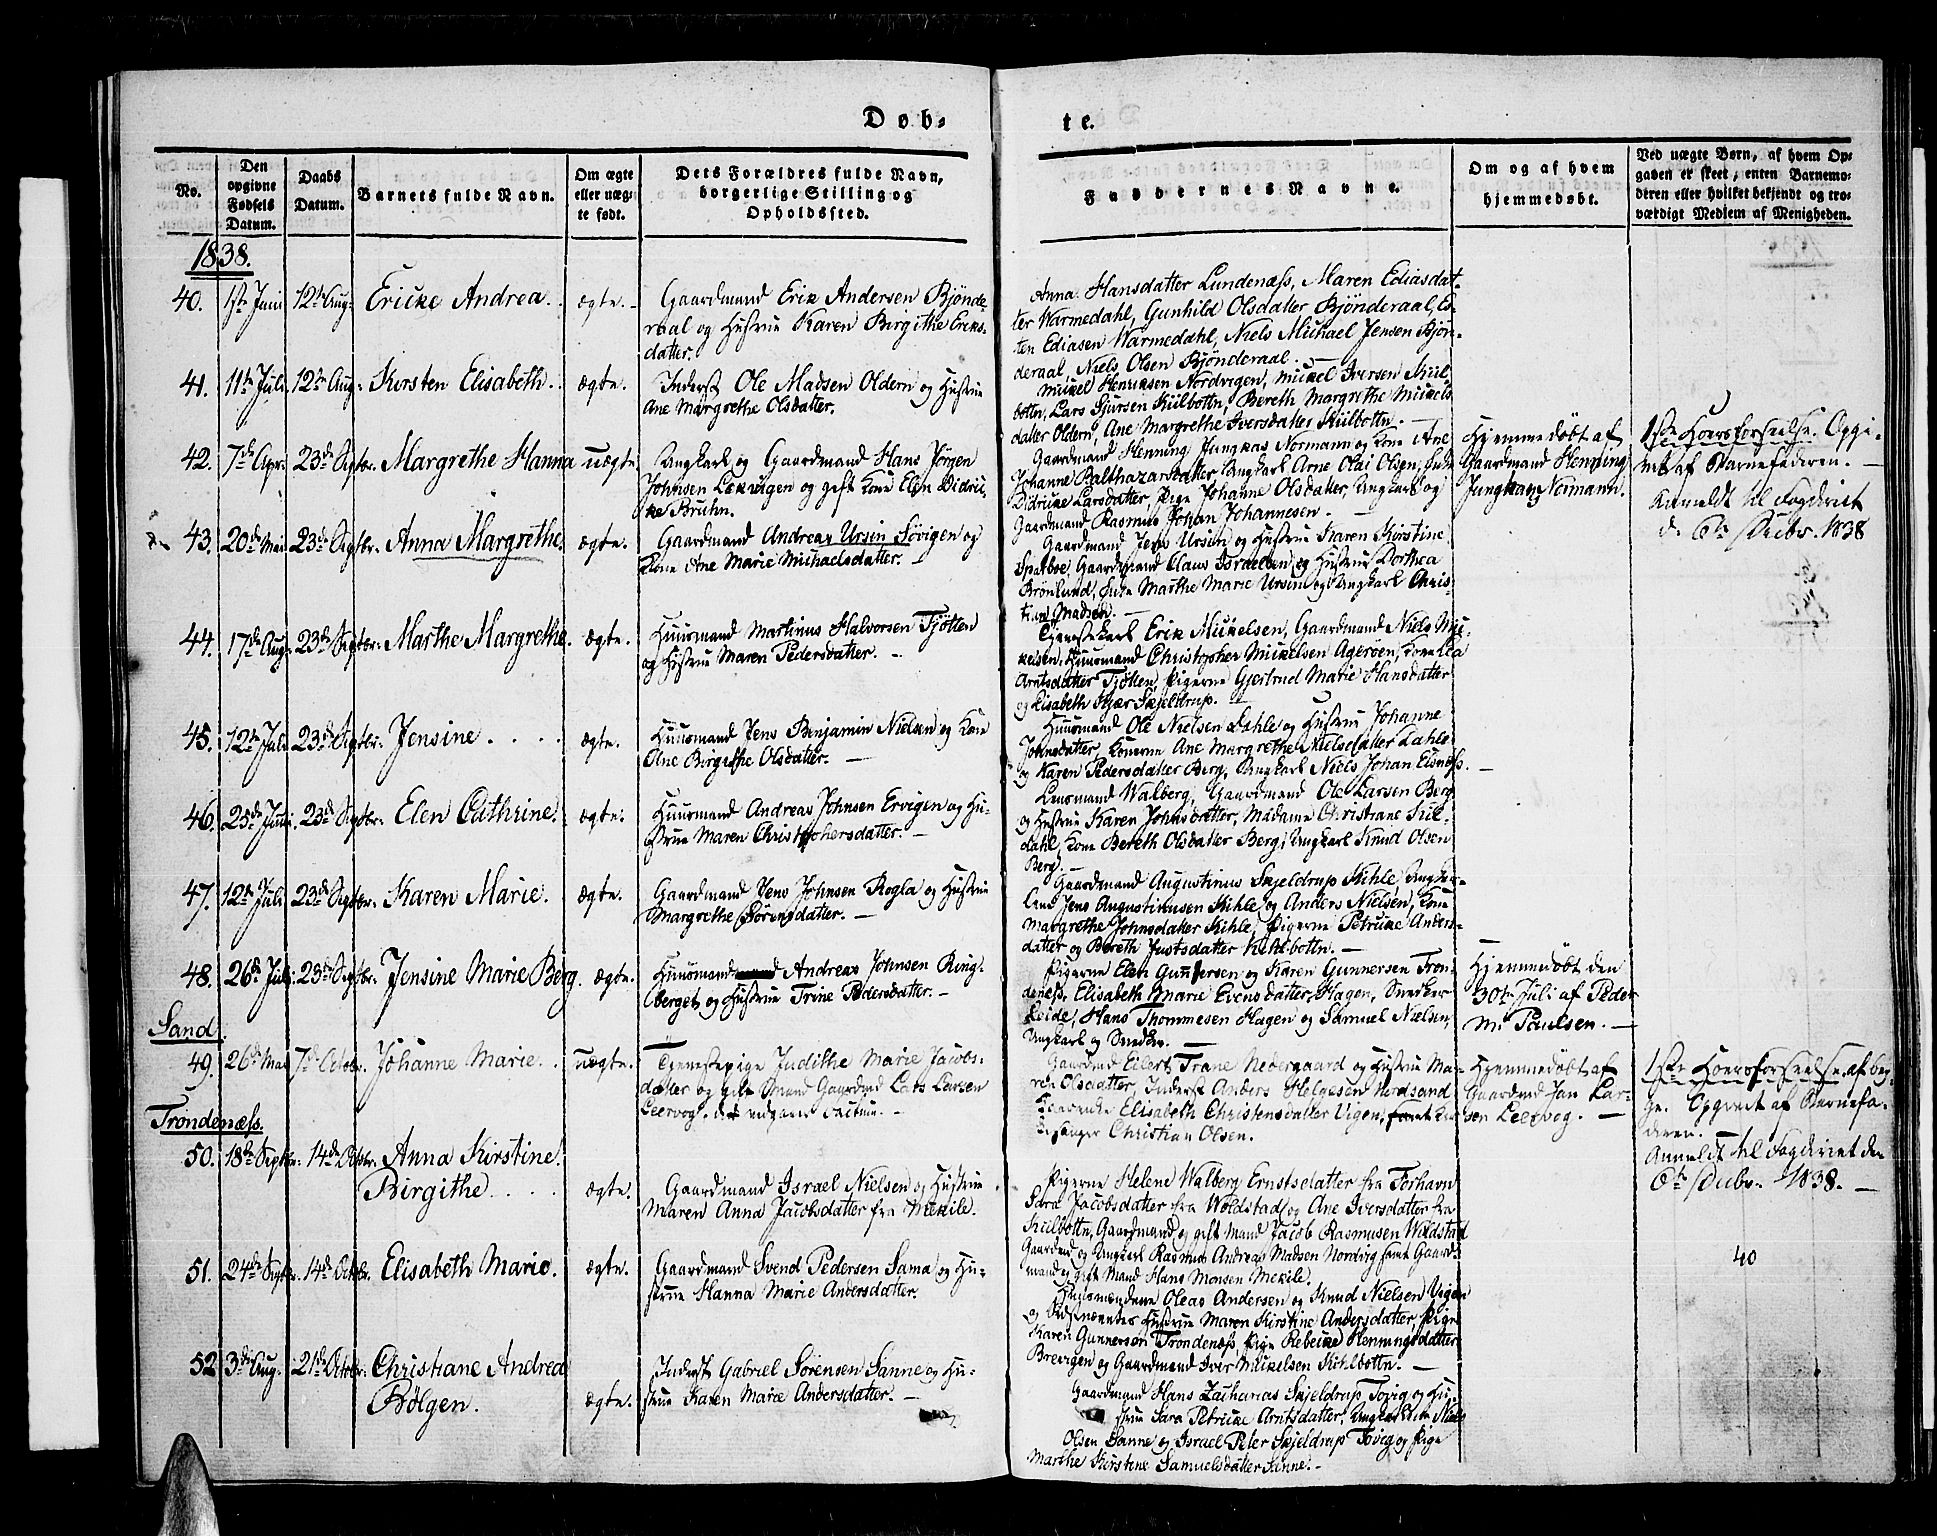 Døb-
te.
No.
Den opgivne Fødsels Datum.
Daabs Datum.
Barnets fulde Navn.
Om ægte eller uægte født.
Dets Forældres fulde Navn, borgerlige Stilling og Opholdssted.
Faddernes Navne.
Om og af hvem hjemmedøbt.
Ved uægte Børn, af hvem Opgaven er skeet, enten Barnemoderen eller hvilket bekjendt og troværdigt Medlem af Menigheden.
1838.
40. 1ste Juni 12te Aug: Ericke Andrea. ægte.
Gaardmand Erik Andersen Bjönde-
raal og Hustrue Karen Birgithe Eriks-
datter.
Anna Hansdatter Lundenæss, Maren Ediasdat-
ter Warmedahl, Gunhild Olsdatter Bjönderaal, Es-
ten Ediasen Warmedahl, Niels Michael Jensen Bjön-
deraal, Niels Olsen Bjönderaal.
41. 11te Juli. 12te Aug: Kirsten Elisabeth. ægte.
Inderst Ole Madsen Oldern og Hustrue
Ane Margrethe Olsdatter.
Mickel Henriksen Nordvigen, Mickel Iversen Kiil-
bottn, Lars Sjursen Kiilbottn, Bereth Margrethe Mickels-
datter Oldern, Ane Margrethe Iversdatter Kiilbottn.
42. 7de Apr: 23de Septbr. Margrethe Hanna uægte.
Ungkarl og Gaardmand Hans Jörgen
Johnsen Lekvigen og gift Kone Elen Didric-
ke Bruhn.
Gaardmand Henning Junghas Normann og Kone Ane
Johanne Balthazarsdatter, Ungkarl Arne Olai Olsen,
Didricke Larsdatter, Pige Johanne Olsdatter, Ungkarl og
Gaardmand Rasmus Johan Johannesen.
Hjemmedöbt af
Gaardmand Henning
Junghas Normann.
1ste Hoersforseelse. Opgi-
vet af Barnefaderen.
Anmeldt til Fogderiet
d. 6te Decbr. 1838
43. 20de Mai 23de Septbr. Anna Margrethe. ægte.
Gaardmand Andreas Ursin Sövigen og
Kone Ane Marie Michaelsdatter.
Gaardmand Jens Ursin og Hustrue Karen Kirstine
Sparboe, Gaardmand Claus Israelsen og Hustrue Dorthea
Brönlund, Marthe Marie Ursin og Ungkarl Chris-
tian Madsen.
44. 17de Aug: 23de Septbr: Marthe Margrethe. ægte.
Huusmand Martinus Halvorsen Tjötten
og Hustrue Maren Pedersdatter.
Tjenestekarl Erik Mickelsen, Gaardmand Niels Mic-
kelsen, Huusmand Christopher Mickelsen Ageröen, Kone Lea
Arntsdatter Tjötten, Pigerne Gjertrud Marie Hansdatter
og Elisabeth Kjær Skjeldrup.
45. 12te Juli 23de Septbr: Jensine. ægte.
Huusmand Jens Benjamin Nielsen og Kone
Ane Birgithe Olsdatter.
Huusmand Ole Nielsen Dahle og Hustrue Johanne
Johnsdatter, Konerne Ane Margrethe Nielsdatter Dahle
og Karen Pedersdatter Berg, Ungkarl Niels Johan Elsnæss.
46. 25de Juni. 23de Septbr. Elen Cathrine. ægte.
Huusmand Andreas Johnsen Ervigen og Hu-
strue Maren Christophersdatter.
Lensmand Walberg, Gaardmand Ole Larsen Berg
og Hustrue Karen Johnsdatter, Madame Christiane Kiil-
dahl, Kone Bereth Olsdatter Berg, Ungkarl Knud Olsen
Berg.
47. 12te Juli 23de Septbr. Karen Marie. ægte.
Gaardmand Jens Johnsen Rogla og Hustrue
Margrethe Sörensdatter.
Gaardmand Augustinus Skjeldrup Kihle, Ungkar-
lene Jens Augustinusen Kihle, og Anders Nielsen, Kone
Margrethe Johnsdatter Kihle, Pigerne Petricke Anders-
datter og Bereth Justsdatter Kihlbottn.
48. 26de Juli. 23de Septbr. Jensine Marie Berg. ægte.
Huusmand Andreas Johnsen Ring-
berget og Hustrue Trine Pedersdatter.
Pigerne Elen Gunnersen og Karen Gunnersen Tron-
denæss, Elisabeth Marie Evensdatter Hagen, Snedker
Leide, Hans Thommesen Hagen og Samuel Nielsen,
Ungkarl og Snedker.
Hjemmedöbt den
30te Juli af Peder
M. Paulsen.
Sand.
49. 26de Mai 7de Octobr. Johanne Marie. uægte.
Tjenestepige Judithe Marie Jacobs-
datter og gift Mand Gaardmd Lars Larsen
Leervog.
Gaardmd Eilert Trane Nedergaard og Hustrue Ma-
ren Olsdatter, Inderst Anders Helgesen Nordsand
Elisabeth Christensdatter Vigen, samt Kir-
kesanger Christian Olsen.
Hjemmedöbt af
Gaardmd Jan Lar-
sen Leervog.
1ste Hoersforseelse af beg-
ge. Opgivet af Barnefa-
deren.
Anmeldt til Fogderiet den
6te Decbr. 1838.
Trondenæss.
50. 18de Septbr. 14de Octobr. Anna Kirstine
Birgithe. ægte.
Gaardmand Israel Nielsen og Hustrue
Maren Anna Jacobsdatter fra Mekile.
Pigerne Helene Walberg Ernstsdatter fra Torhavn
Sara Jacobsdatter fra Woldstad og Ane Iversdatter fra
Kiilbottn, Gaardmand og gift Mand Jacob Rasmusen Woldstad
Gaardmd og Ungkarl Rasmus Andreas Madsen Nordvig samt Gaard-
mand og gift Mand Hans Monsen Mekile.
51. 24de Septbr. 14de Octbr. Elisabeth Marie. ægte.
Gaardmand Svend Pedersen Sama og Hu-
strue Hanna Marie Andersdatter.
Huusmændene Oleas Andersen og Knud Nielsen Vigen
og Sidstnævntes Hustrue Maren Kirstine Andersdatter, Pige
Karen Gunnersen Trondenæss, Pige Rebecke Henningsdatter
Brevigen og Gaardmand Iver Mickelsen Kihlbottn.
40
52 3die Aug: 21de Octobr: Christiane Andrea
Bölgen. ægte.
Inderst Gabriel Sörensen Sanne og Hu-
strue Karen Marie Andersdatter.
Gaardmand Hans Zacharias Skjeldrup Tovig og Hu-
strue Sara Petricke Arntsdatter, Ungkarl Niels
Olsen Sanne og Israel Peter Skjeldrup Tovig og Pige
Marthe Kirstine Samuelsdatter Sanne.